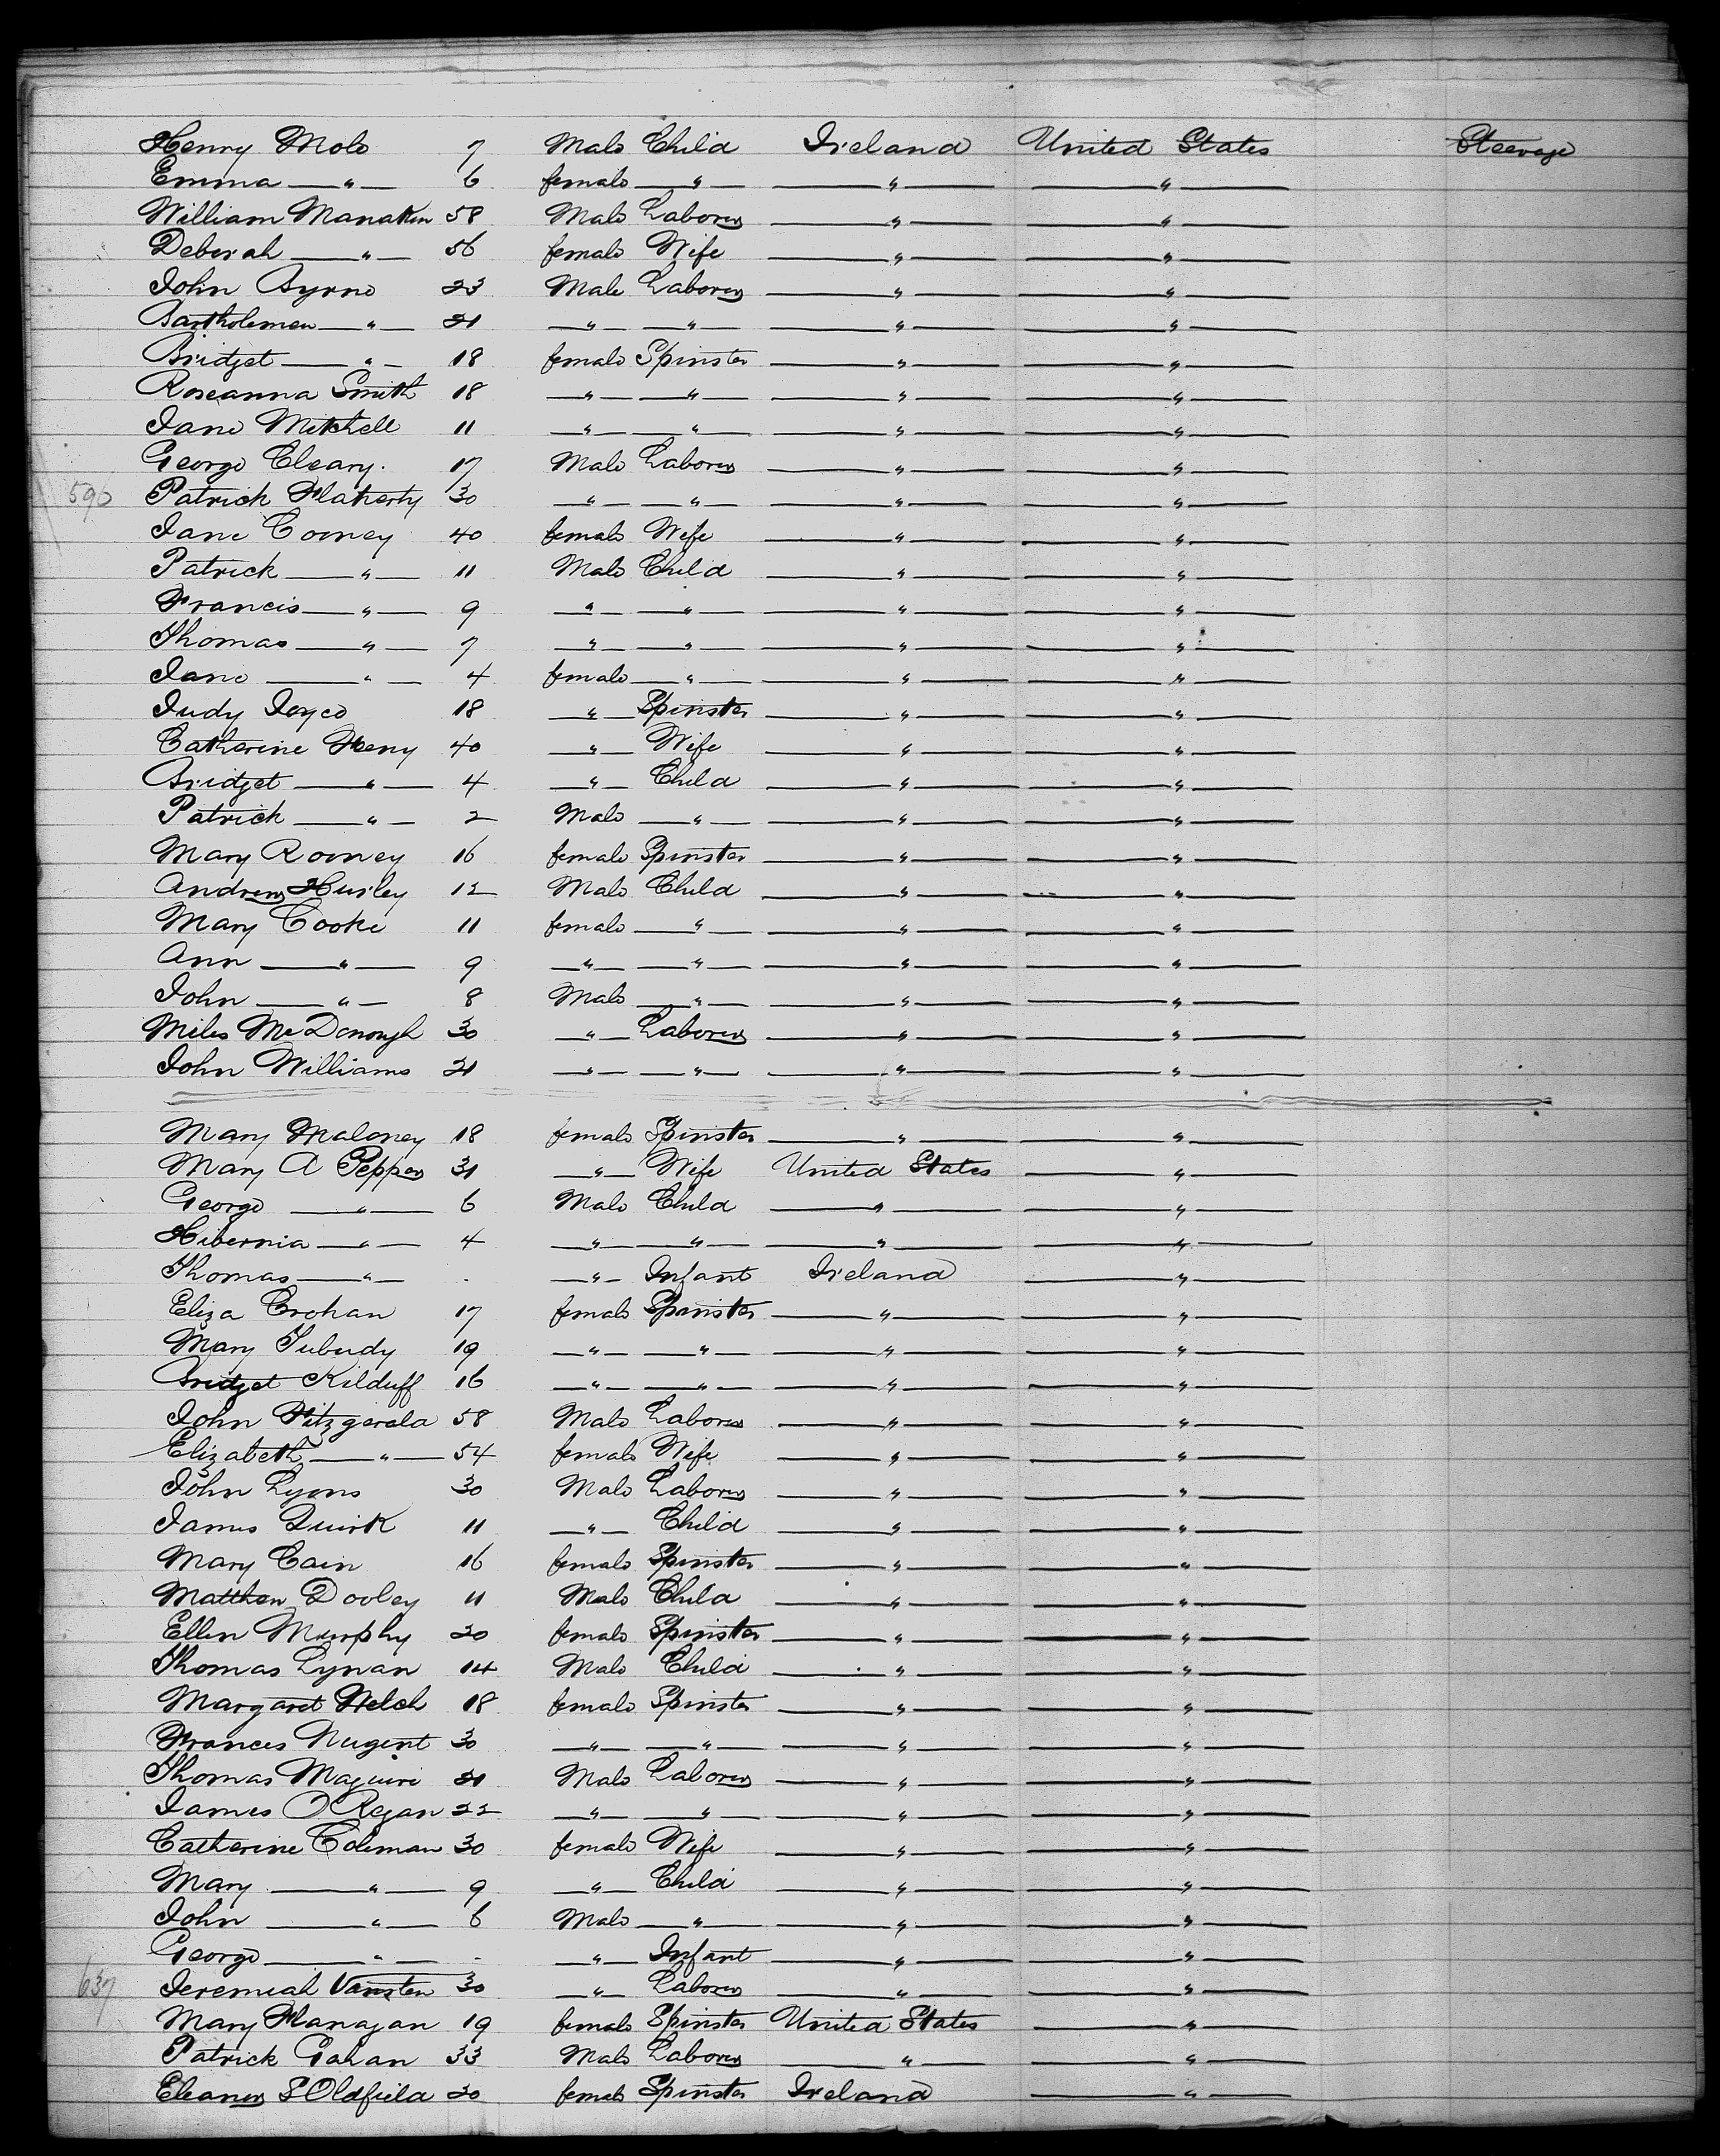 Henry Molo 7 Male Child Ireland United States Steerage
Emma — " — 6 female — " — — " — — " —
William Manakin 58 Male Laborer — " — — " —
Deborah — " — 56 female Wife — " — — " —
John Byrne 23 Male Laborer — " — — " —
Bartholemew — " — 21 — " — — " — — " — — " —
Bridget — " — 18 female Spinster — " — — " —
Roseanna Smith 18 — " — — " — — " — — " —
Jane Mitchell 11 — " — — " — — " — — " —
George Cleary. 17 Male Laborer — " — — " —
590 Patrick Flaherty 30 — " — — " — — " — — " —
Jane Cooney 40 female Wife — " — — " —
Patrick — " — 11 Male Child — " — — " —
Francis — " — 9 — " — — " — — " — — " —
Thomas — " — 7 — " — — " — — " — — " —
Jane — " — 4 female — " — — " — — " —
Judy Joyce 18 — " — Spinster — " — — " —
Catherine Heny 40 — " — Wife — " — — " —
Bridget — " — 4 — " — Child — " — — " —
Patrick — " — 2 Male — " — — " — — " —
Mary Rooney 16 female Spinster — " — — " —
Andrew Hurley 12 Male Child — " — — " —
Mary Cooke 11 female — " — — " — — " —
Ann — " — 9 — " — — " — — " — — " —
John — " — 8 Male — " — — " — — " —
Miles McDonough 30 — " — Laborer — " — — " —
John Williams 21 — " — — " — — " — — " —
Mary Maloney 18 female Spinster — " — — " —
Mary A Pepper 31 — " — Wife United States — " —
George — " — 6 Male Child — " — — " —
Hibernia — " — 4 — " — — " — — " — — " —
Thomas — " — . — " — Infant Ireland — " —
Eliza Crohan 17 female Spinster — " — — " —
Mary Tubudy 19 — " — — " — — " — — " —
Bridget Kilduff 16 — " — — " — — " — — " —
John Fitzgerald 58 Male Laborer — " — — " —
Elizabeth — " — 54 female Wife — " — — " —
John Lyons 30 Male Laborer — " — — " —
James Quirk 11 — " — Child — " — — " —
Mary Cain 16 female Spinster — " — — " —
Matthew Dooley 11 Male Child — " — — " —
Ellen Murphy 20 female Spinster — " — — " —
Thomas Lynan 14 Male Child — " — — " —
Margaret Welch 18 female Spinster — " — — " —
Frances Nugent 30 — " — — " — — " — — " —
Thomas Maguire 21 Male Laborer — " — — " —
James O Regan 22 — " — — " — — " — — " —
Catherine Coleman 30 female Wife — " — — " —
Mary — " — 9 — " — Child — " — — " —
John — " — 6 Male — " — — " — — " —
George — " — . — " — Infant — " — — " —
637 Jeremiah 30 — " — Laborer — " — — " —
Mary Flanagan 19 female Spinster United States — " —
Patrick Gahan 33 Male Laborer — " — — " —
Eleanor S Oldfield 20 female Spinster Ireland — " —